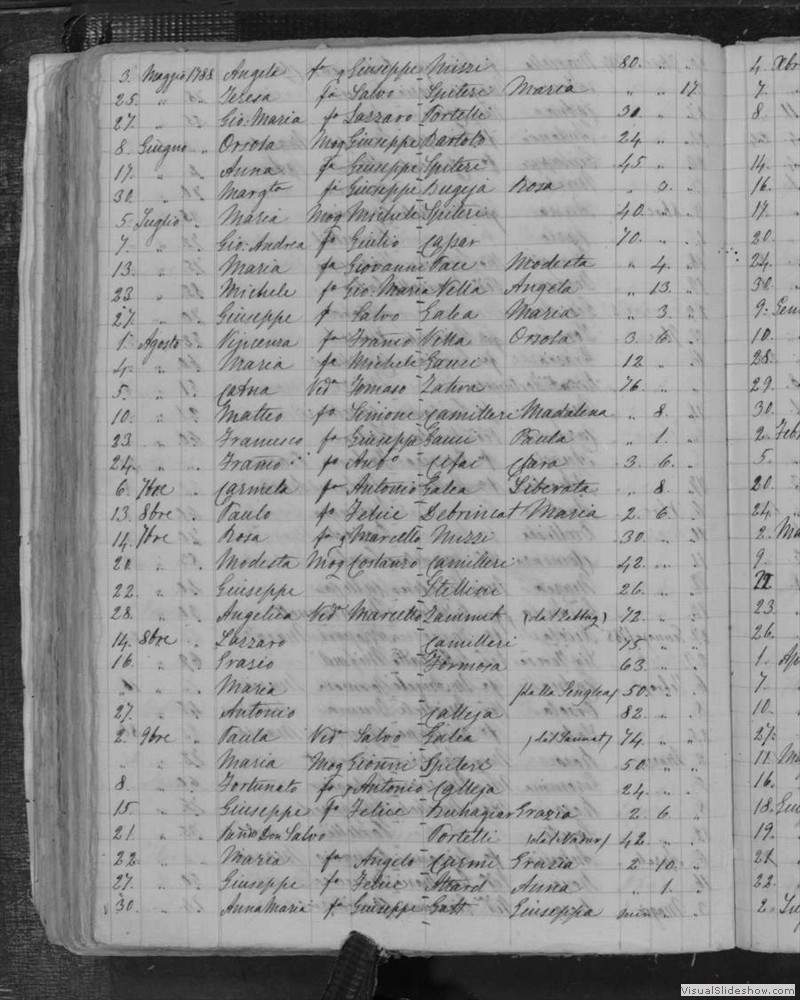 3. Maggio 1788 Angela fa q Giuseppe Mizzi 80. " "
25. " " Teresa fa Salvo Spiteri Maria " " 17
27. " " Gio: Maria fo Lazzaro Portelli 30. " "
8. Giugno " Orsola Mog Giuseppe Bartolo 24. " "
17. " " Anna fa Giuseppe Spiteri 45. " "
30. " " Margta fa Giuseppe Bugeja Rosa " 3. "
5. Luglio " Maria Mog Michele Spiteri 40. " "
7. " " Gio: Andrea fo Giulio Capar 70. " "
13. " " Maria fa Giovanni Pace Modesta " 4. "
23 " " Michele fo Gio: Maria Vella Angela " 13. "
27. " " Giuseppe f Salvo Galea Maria " 3 "
1. Agosto " Vincenza fa Franco Vella Orsola 3 6. "
4. " " Maria fa Michele Gauci 12 " "
5. " " Catna Veda Tomaso Zahra 76. " "
10. " " Matteo fo Simone Camilleri Madalena " 8. "
23 " " Francesco fo Giuseppe Gauci Paula " 1. "
24. " " Franco fo Anto Cefai Clara 3. 6. "
6. 7bre " Carmela fa Antonio Galea Liberata " 8. "
13. 8bre " Paulo fo Felice Debrincat Maria 2. 6. "
14. 7bre " Rosa fa q Marcello Mizzi 30 " "
20. " " Modesta Mog Costanzo Camilleri 42. " "
22. " " Giuseppe Stellini 26. " "
28. " " Angelica Veda Marcello Zammit (tal Bettag) 72. " "
14. 8bre " Lazzaro Camilleri 75 " "
16. " " Grazio Formosa 63. " "
" " " Maria (della Senglea) 50. " "
27. " " Antonio Calleja 82. " "
2. 9bre " Paula Veda Salvo Galea (tal Sannat) 74. " "
" " " Maria Mog Gionni Spiteri 50. " "
8. " " Fortunato fo q Antonio Calleja 24. " "
15. " " Giuseppe fo Felice Buhagiar Grazia 2 6. "
21. " " Don Salvo Portelli (tal Nadur) 42. " "
22. " " Maria fa Angelo Cassar Grazia 2 10. "
27. " " Giuseppe fo Felice Attard Anna " 1. "
30. " " Anna Maria fa Giuseppe Gatt Giuseppa
4. Xbr
7.
8
14.
16.
17.
20.
24.
30.
9. Gen
10.
28.
29.
30.
2. Feb
5.
20.
24.
2. Ma
9.
22
23
26.
1. Ap
7.
10.
27.
11. Ma
16.
18. Giu
19.
21
22.
2.
VisualSlideshow.com